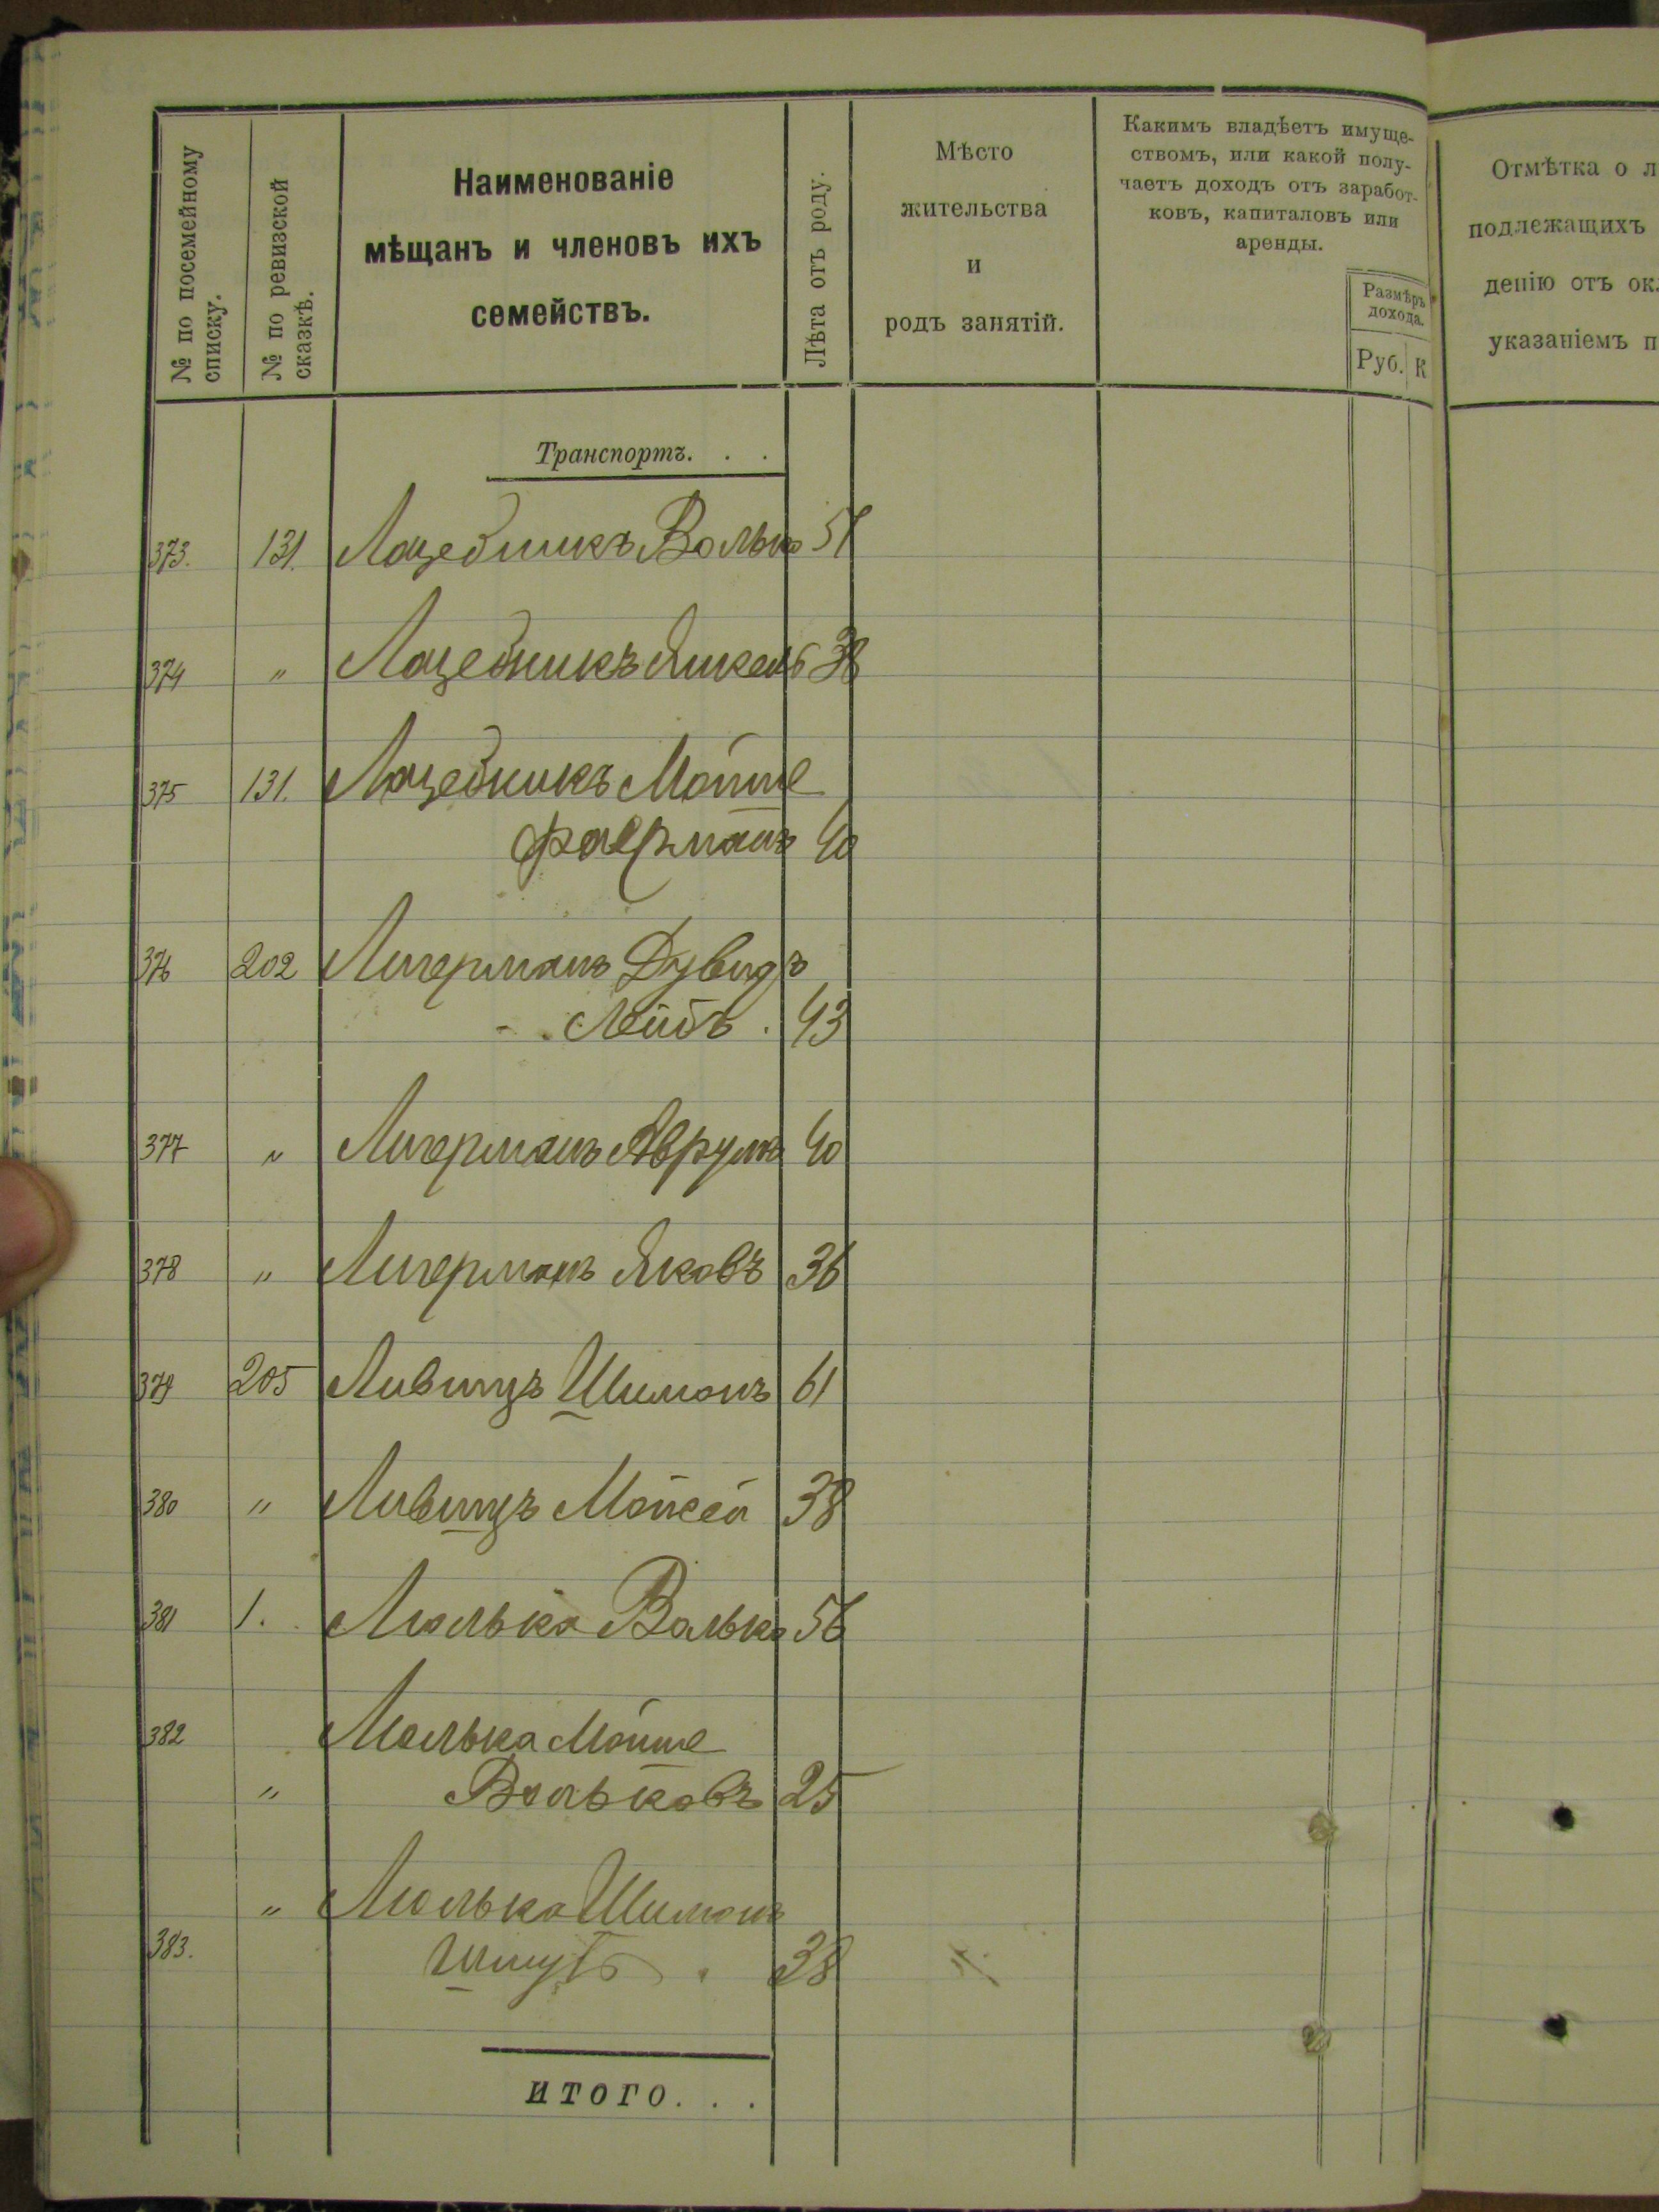 № по посемейному списку.
№ по ревизской сказкѣ.
Наименованіе
мѣщанъ и членовъ ихъ
семействъ.
Лѣта отъ роду.
Мѣсто
жительства
и
родъ занятій.
Какимъ владѣетъ имуще-
ствомъ, или какой полу-
чаетъ доходъ отъ заработ-
ковъ, капиталовъ или
аренды.
Размѣръ
дохода.
Руб. К
Отмѣтка о л
подлежащихъ
денію отъ ок
указаніемъ п
Транспортъ. . .
373. 131. Лацебникъ Волько
374 " Лацебникъ Янкель 38
375 131. Лацебникъ Мойше
40
376 202 Лигерманъ Дувидъ
Лейбъ . 43
377 " Лигерманъ Аврумъ 40
378 " Лигерманъ Яковъ 36
379 205 Лившицъ Шимонъ 61
380 " Лившицъ Мойсей 38
381 1. Люлька Волько 56
382 Люлька Мойше
" Вольковъ 25
" Люлька Шимонъ
383. 38
ИТОГО. . .